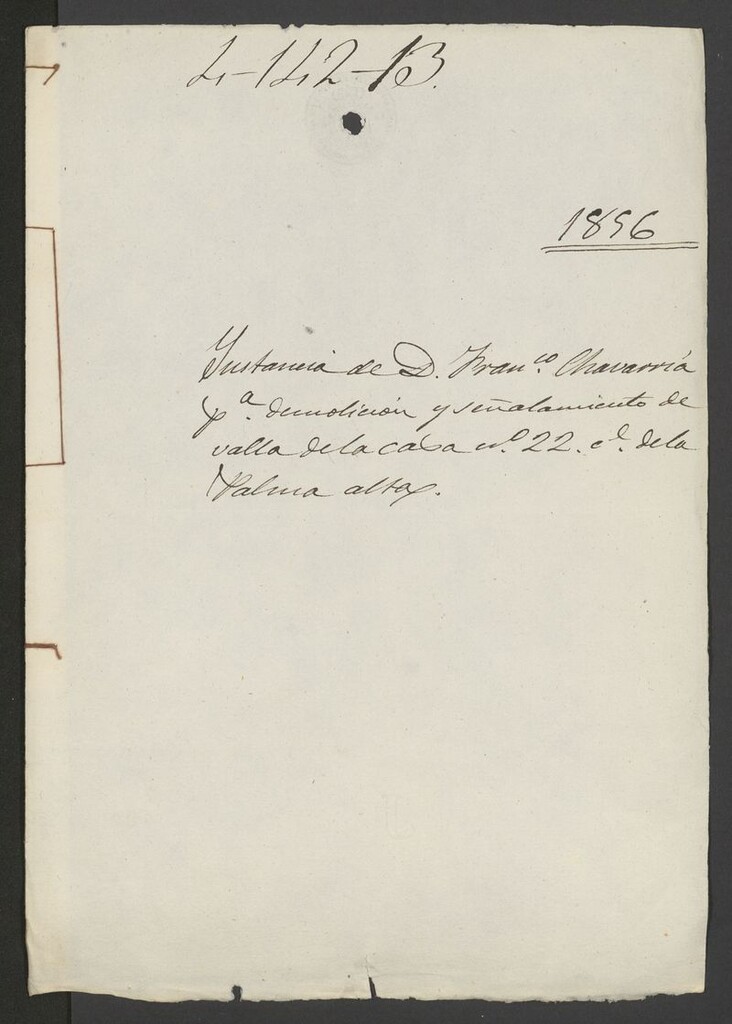 4-142-13.
1856
Instancia de D. Fran.co Chavarría
p.a demolicion y señalamiento de
valla de la casa n.o 22. c.e de la
Palma alta.